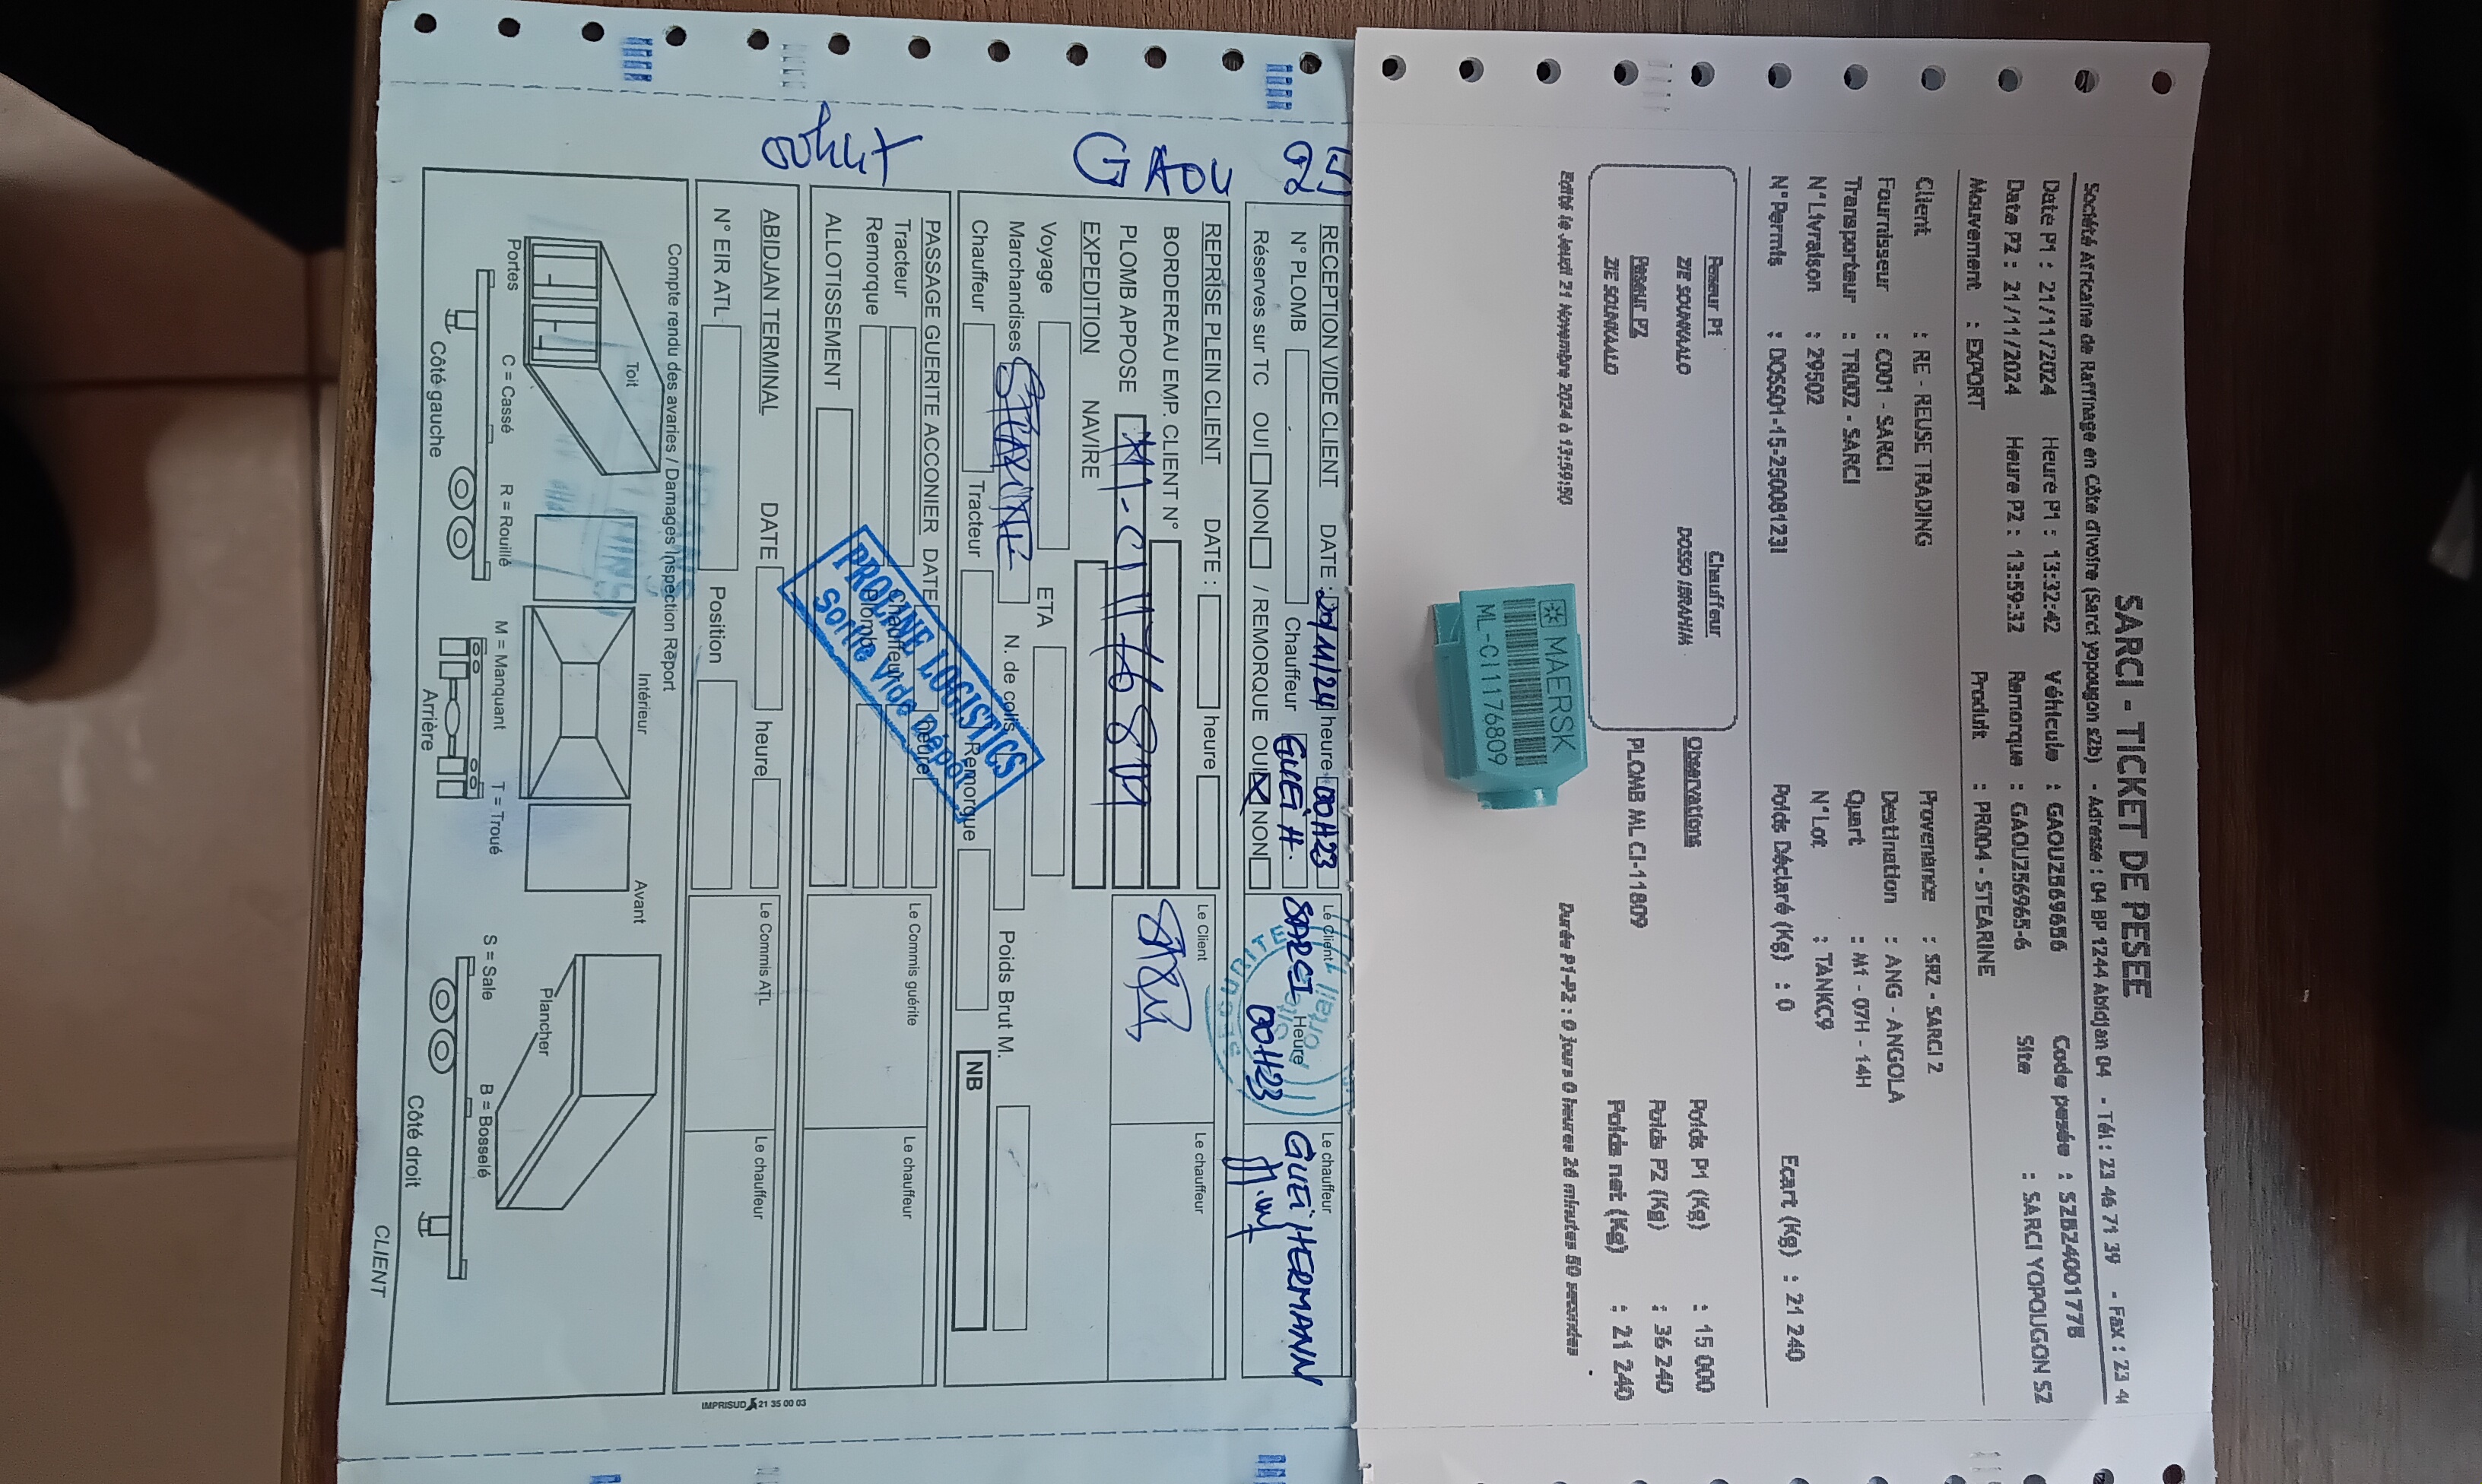 SARCI - TICKET DE PESEE
Société Africaine de Raffinage en Côte d'Ivoire (Sarci yopougon s2b) - Adresse : 04 BP 1244 Abidjan 04 - Tél : 23 46 71 39 - Fax : 23 4
Date P1 : 21/11/2024 Heure P1 : 13:32:42 Véhicule : GAOU2569656 Code pesée : S2B24001775
Date P2 : 21/11/2024 Heure P2 : 13:59:32 Remorque : GAOU256965-6 Site : SARCI YOPOUGON S2
Mouvement : EXPORT Produit : PR004 - STEARINE
Client : RE - REUSE TRADING Provenance : SR2 - SARCI 2
Fournisseur : C001 - SARCI Destination : ANG - ANGOLA
Transporteur : TR002 - SARCI Quart : M1 - 07H - 14H
N°Livraison : 29502 N°Lot : TANKC9
N°Permis : DOSS01-15-25008123I Poids Déclaré (Kg) : 0 Ecart (Kg) : 21 240
Peseur P1 Chauffeur Observations Poids P1 (Kg) : 15 000
ZIE SOUNKAALO DOSSO IBRAHIM PLOMB ML CI-11809 Poids P2 (Kg) : 36 240
Peseur P2 Poids net (Kg) : 21 240
ZIE SOUNKAALO
Edité le Jeudi 21 Novembre 2024 à 13:59:50 Durée P1-P2 : 0 jours 0 heures 26 minutes 50 secondes
MAERSK
ML-CI1176809
RECEPTION VIDE CLIENT DATE : heure 00H23 Le Client Le chauffeur
N° PLOMB Chauffeur GUEI H. SARCI Heure 00H23 GUEI HERMANN
Réserves sur TC OUI NON / REMORQUE OUI NON
25
REPRISE PLEIN CLIENT DATE : heure Le Client Le chauffeur
BORDEREAU EMP. CLIENT N°
PLOMB APPOSE
GAOU
EXPEDITION NAVIRE
Voyage ETA
Marchandises STEARINE N. de colis Poids Brut M.
Chauffeur Tracteur Remorque NB
PASSAGE GUERITE ACCONIER DATE heure Le Commis guérite Le chauffeur
Tracteur Chauffeur
Remorque Plomb
ALLOTISSEMENT
PROLINE LOGISTICS
Sortie Vide Dépôt
ABIDJAN TERMINAL DATE heure Le Commis ATL Le chauffeur
N° EIR ATL Position
IMPRISUD 21 35 00 03
Compte rendu des avaries / Damages Inspection Report
Toit Intérieur Avant Plancher
Portes C = Cassé R = Rouillé M = Manquant T = Troué S = Sale B = Bosselé
Côté gauche Arrière Côté droit
CLIENT